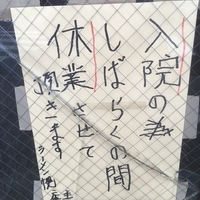 入院の為
しばらくの間
休業させて
頂きます
ラーメン
店主